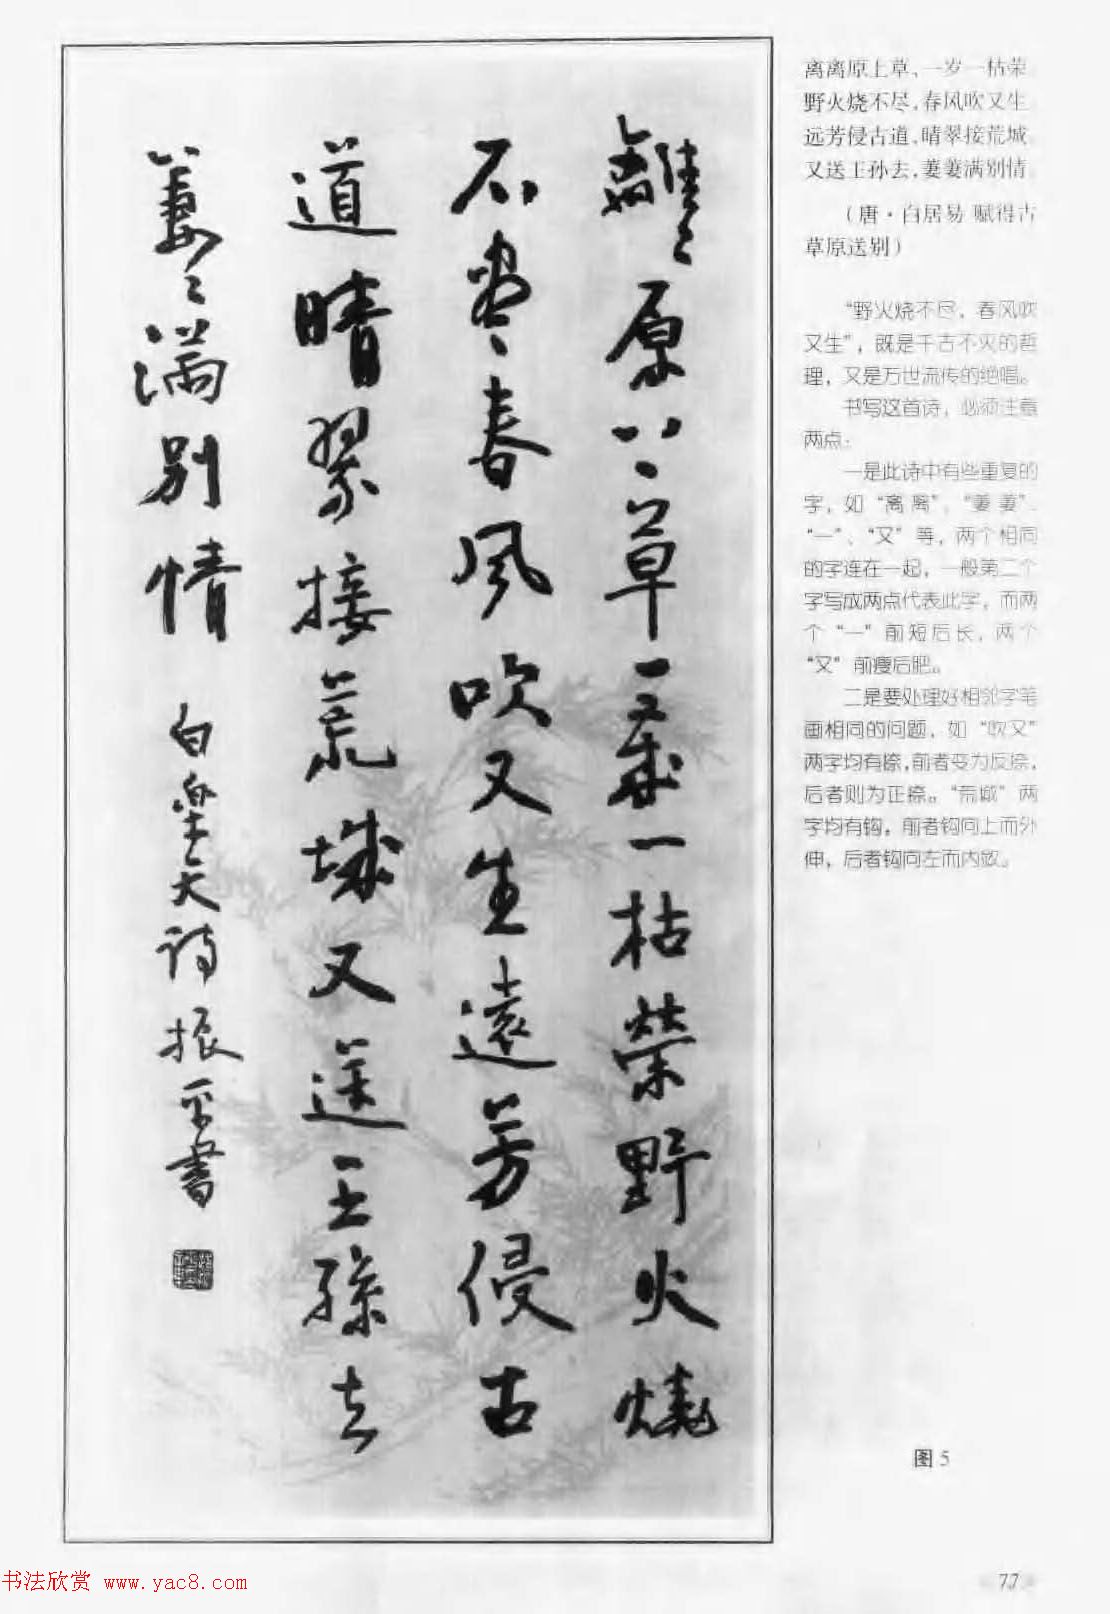 離〻原上草一歲一枯榮野火燒
不盡春風吹又生遠芳侵古
道晴翠接荒城又送王孫去
萋〻滿別情 白樂天詩 振平書
离离原上草、一岁一枯荣
野火烧不尽,春风吹又生
远芳侵古道,晴翠接荒城
又送王孙去,萋萋满别情
(唐·白居易 赋得古
草原送别)
“野火烧不尽,春风吹
又生”,既是千古不灭的哲
理,又是万世流传的绝唱。
书写这首诗,必须注意
两点:
一是此诗中有些重复的
字,如“离离”、“萋萋”、
“一”、“又”等,两个相同
的字连在一起,一般第二个
字写成两点代表此字,而两
个“一”前短后长,两个
“又”前瘦后肥。
二是要处理好相邻字笔
画相同的问题,如“吹又”
两字均有捺,前者变为反捺,
后者则为正捺。“荒城”两
字均有钩,前者钩向上而外
伸,后者钩向左而内敛。
图 5
书法欣赏 www.yac8.com
77